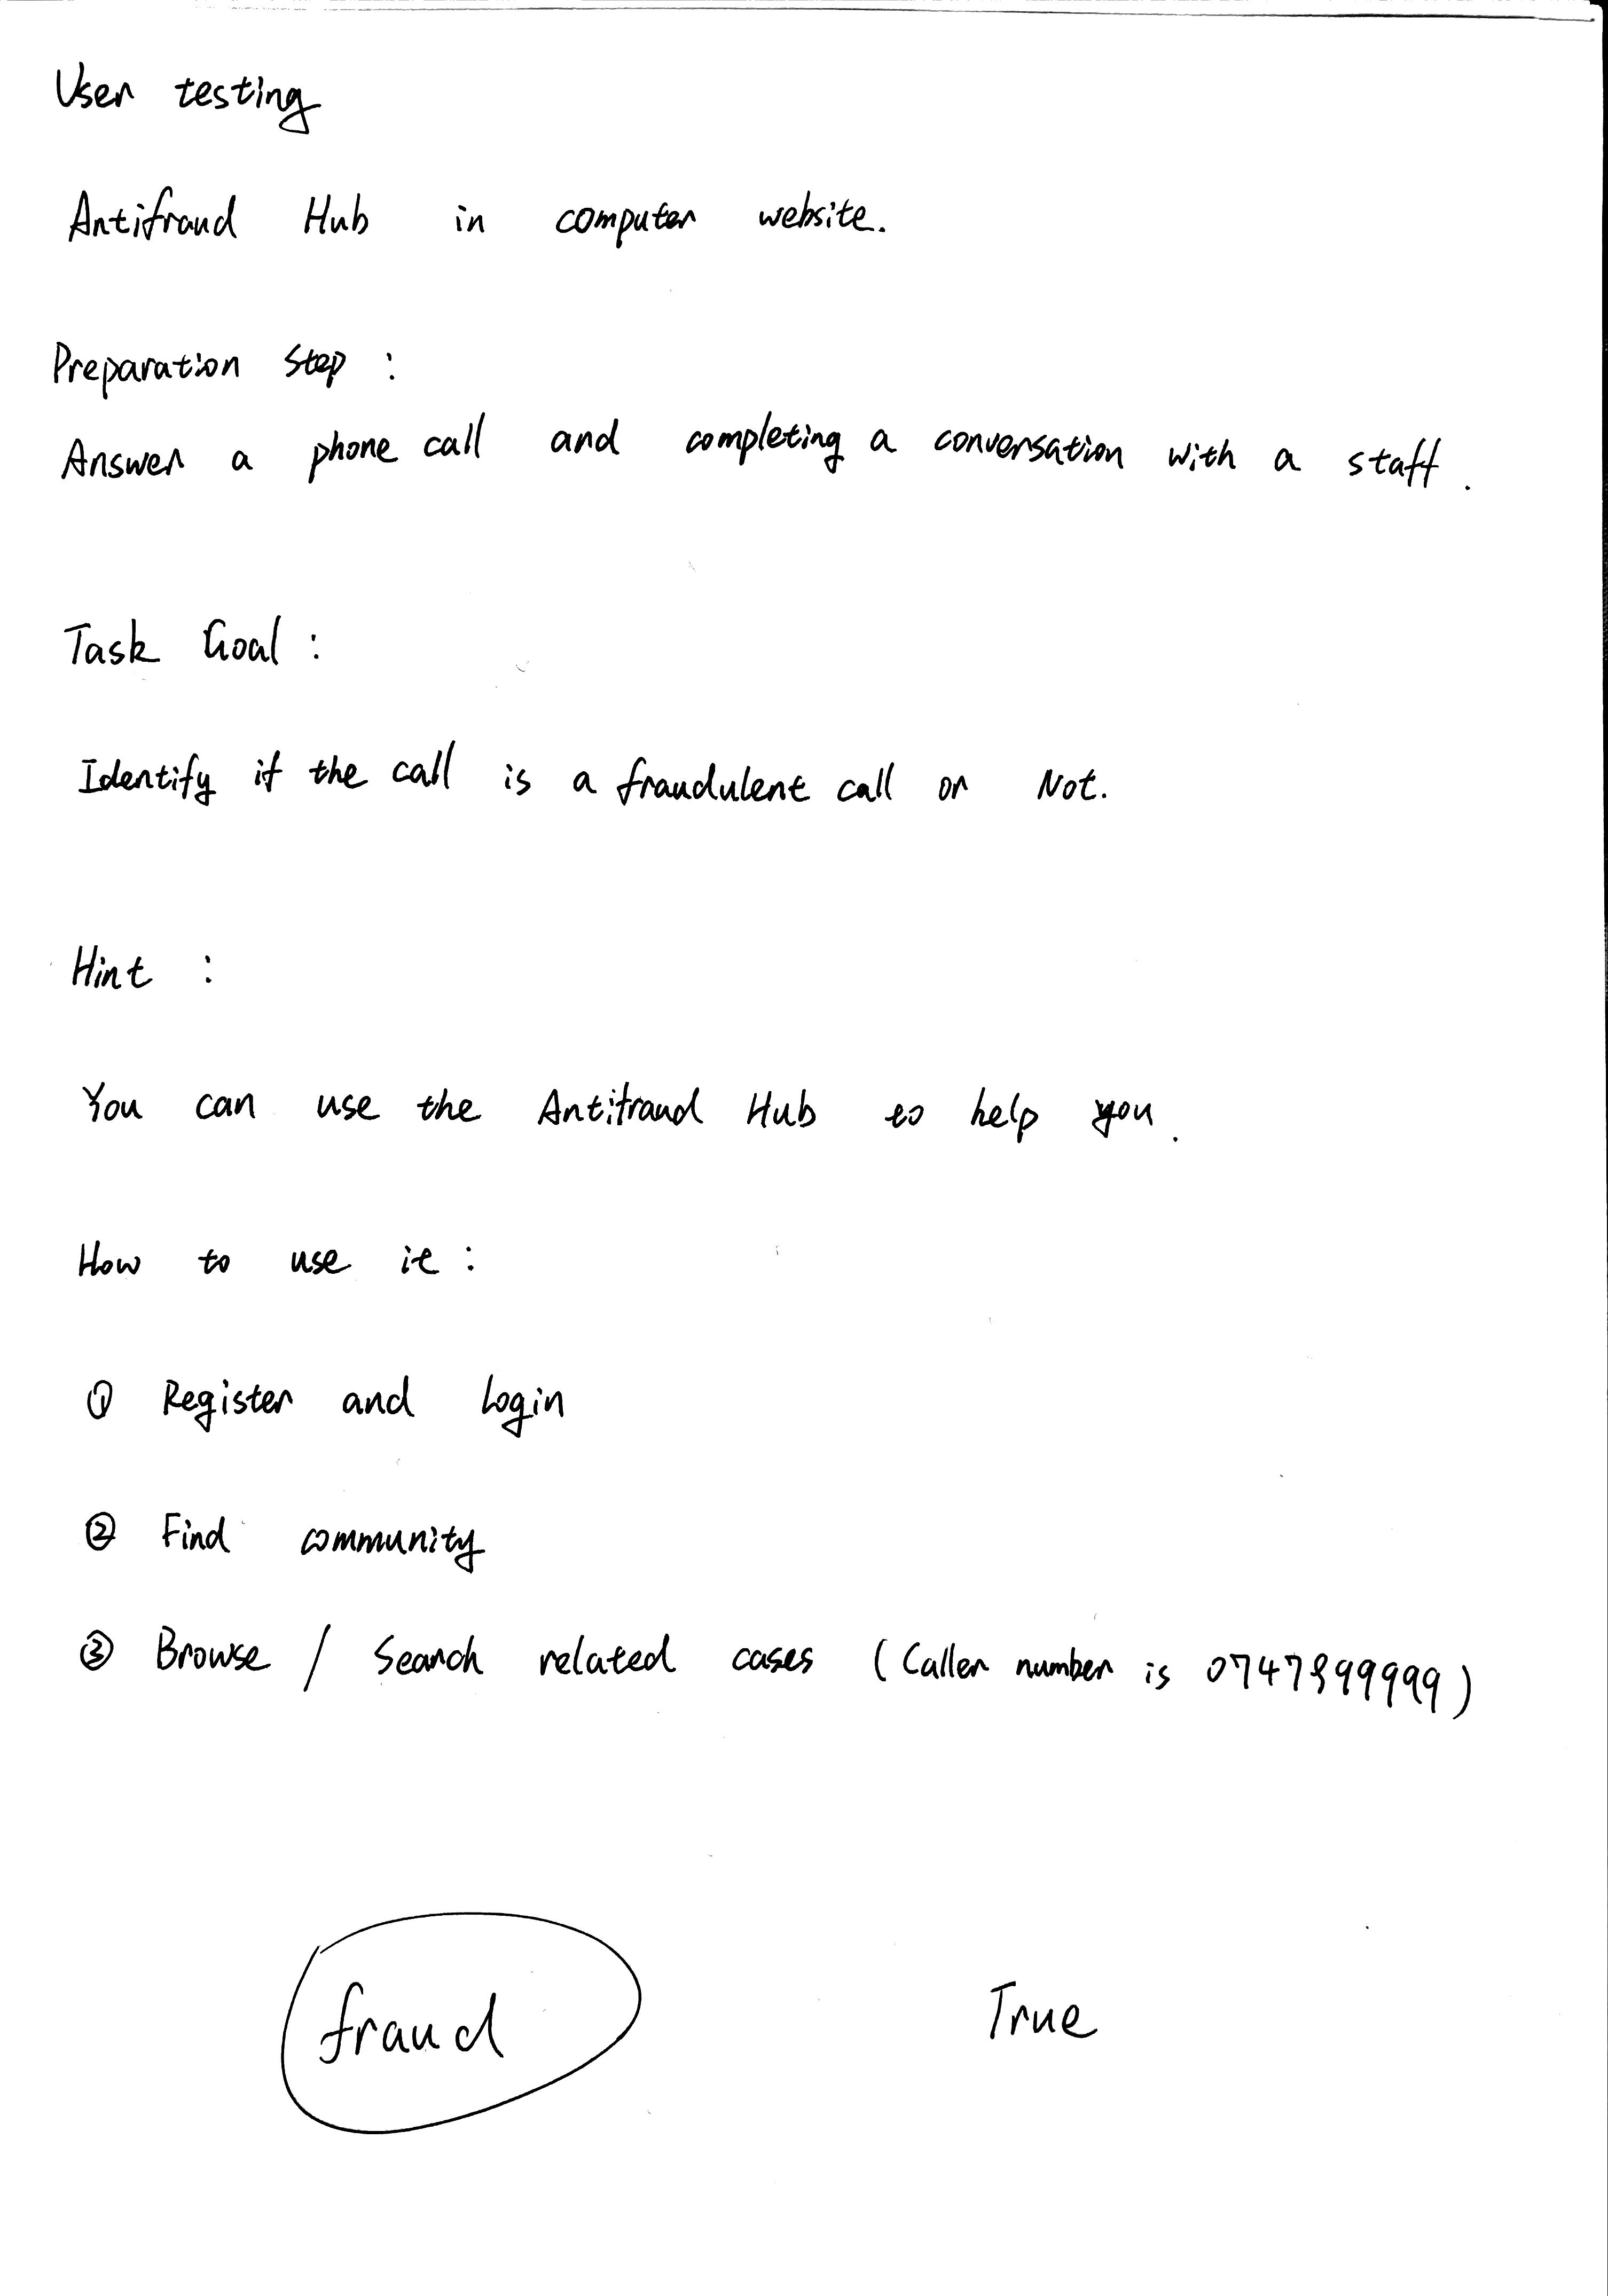 User testing
Antifraud Hub in computer website.
Preparation Step :
Answer a phone call and completing a conversation with a staff.
Task Goal :
Identify if the call is a fraudulent call or Not.
Hint :
You can use the Antifraud Hub to help you.
How to use it :
① Register and Login
② Find community
③ Browse / Search related cases (Caller number is 0747899999)
fraud True